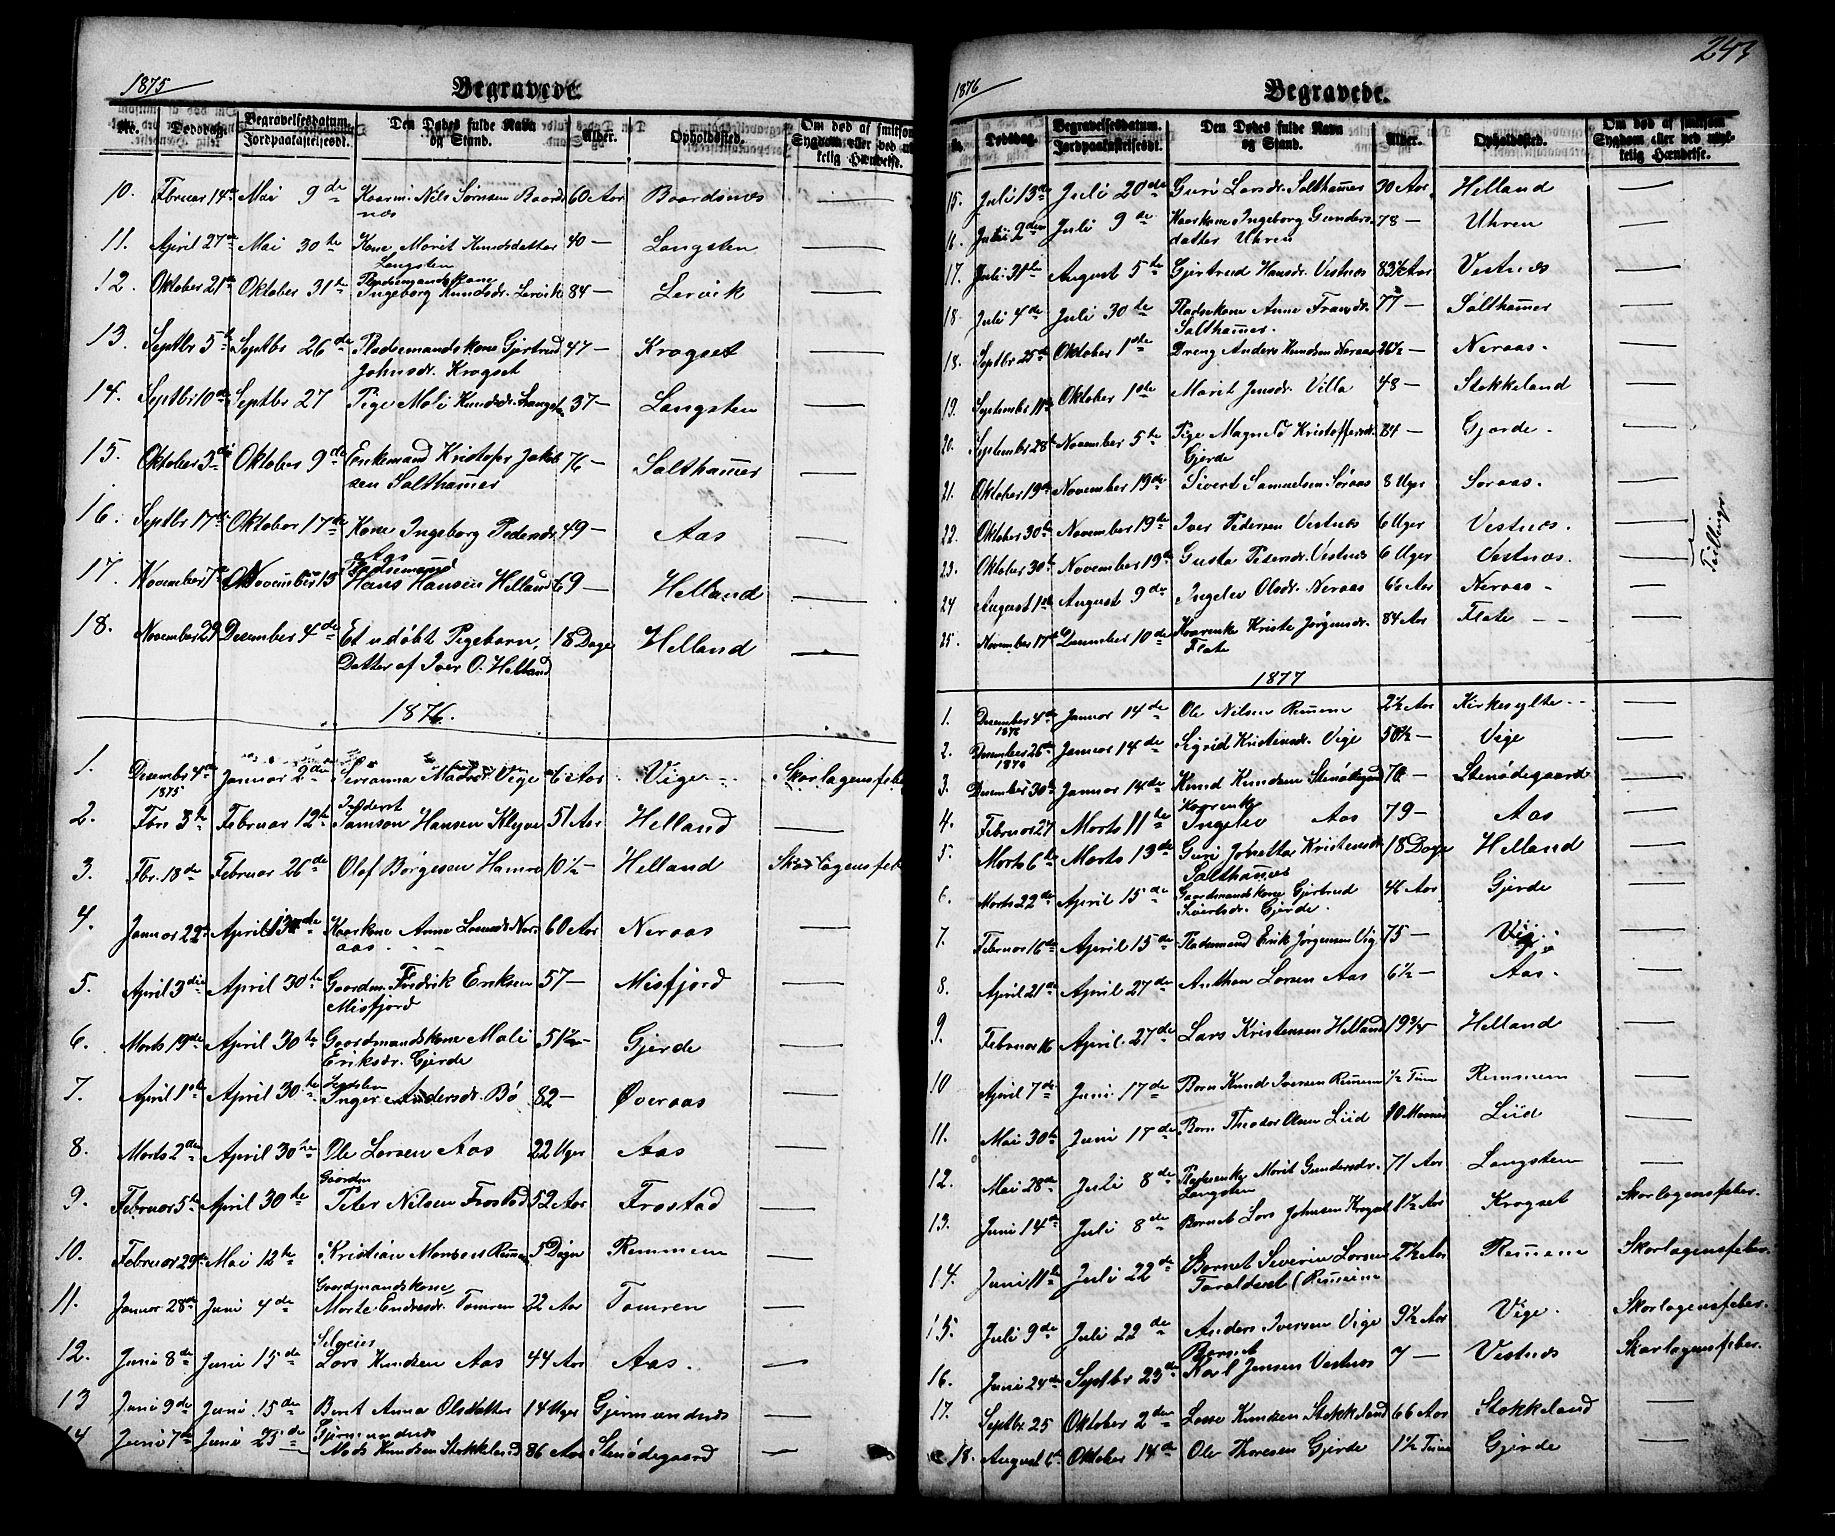 1875
Begravede.
No. Dødsdag. Begravelsesdatum. Jordpaakastelsesdt. Den Dødes fulde Navn og Stand. Alder. Opholdssted. Om død af smitsom Sygdom eller ved
kelig Hændelse.
10. Februar 14de Mai 9de Nils Sørnsen Baards 60 Aar Baardsnes —
nes
11. April 27de Mai 30te Kone Marit Knudsdatter 40 — Langsten —
Langsten
12. Oktober 21de Oktober 31te Pladsemandskone 84 — Lervik —
Ingeborg Knudsdr. Lervik
13. Septbr 5te Septbr 26de Pladsemandskone Gjertrud 47 — Krogset —
Johnsdr. Krogset
14. Septbr 10de Septbr 27 Pige Mali Knudsdr. Langsten 37 — Langsten —
15. Oktober 3die Oktober 9de Enkemand Kristofer Jakob 76 — Salthamer —
sen Salthamer
16. Septbr 17de Oktober 17de Kone Ingeborg Pedersdr. 49 — Aas —
Aas
17. November 7de November 13 Pladsemand 69 — Helland —
Hans Hansen Helland
18. November 29 Desember 4de Et udøbt Pigebarn, 18 Dage Helland —
Datter af Iver O. Helland
1876.
1. Desembr 4de Januar 2den Madsdr Vige 6 Aar Vige Skarlagensfeber
1875
2. Fbr. 3te Februar 12te Inderst 51 Aar Helland —
Samson Hansen Klyve
3. Fbr. 18de Februar 26de Olaf Børgesen Hamre 10½ — Helland Skarlagensfeber
4. Januar 22de April Kaarkone Anne Ner 60 Aar Neraas —
aas
5. April 3die April 30te Gaardm. Fredrik Eriksen 57 — Misfjord —
Misfjord
6. Marts 19de April 30te Gaardmandskone Mali 51½ — Gjerde —
Eriksdr. Gjerde
7. April 1ste April 30te Legdslem 82 — Øveraas —
Inger Andersdr. Bø
8. Marts 2den April 30te Ole Larsen Aas 22 Uger Aas —
9. Februar 5te April 30te Gaardm 52 Aar Frostad —
Peter Nilsen Frostad
10. Februar 29de Mai 12te Kristian Monsen Remmem 5 Døgn Remmem —
11. Januar 28de Juni 4de Gaardmandskone 22 Aar Tomren —
Marte Endresdr. Tomren
12. Juni 8de Juni 15de Selveier 44 Aar Aas. —
Lars Knudsen Aas
13 Juni 9de Juni 15de Berit Anna Olsdatter 14 Uger Gjermundnes —
Gjermundnes
14 Juni 7de Juni 25de Mads Knudsen Stokkeland 86 Aar Stenødegaard —
243
1876
Begravede.
No. Dødsdag. Begravelsesdatum. Jordpaakastelsesdt. Den Dødes fulde Navn og Stand. Alder. Opholdssted. Om død af smitsom Sygdom eller ved ulyk-
kelig Hændelse.
15. Juli 13de Juli 20de Guri Larsdr. Salthamer 30 Aar Helland —
16. Juli 2den Juli 9de Kaarkone Ingeborg Gunders 78 — Uhren —
datter Uhren
17. Juli 31te August 5te Gjertrud Hansdr. Vestnes 83½ Aar Vestnes —
18. Juli 4de Juli 30te Pladsekone Anne Fransdr. 77 — Salthamer —
Salthamer.
18. Septbr 25de Oktober 1ste Dreng Anders Knudsen Neraas 26½ — Neraas. —
19. September 11te Oktober 1ste Marit Jensdr. Villa 48 — Stokkeland —
20. September 28de November 5te Pige Kristoffersdr. 84 — Gjerde. —
Gjerde
21. Oktober 19de November 19de Sivert Samuelsen Søraas 8 Uger Søraas. —
22. Oktober 30te November 19de Iver Pedersen Vestnes 6 Uger Vestnes. —
23. Oktober 30te November 19de Gusta Petersdr. Vestnes 6 Uger Vestnes. —
Tvillinger
24 August 1ste August 9de Ingelev Olsdr. Neraas 6½ Aar Neraas —
25. November 17de Desember 10de Kaarenke Kristi Jørgensdr. 84 Aar Flate —
Flate
1877
1. Desember 4de Januar 14de Ole Nilsen Remmem 2½ Aar Kirkesylte —
1876
2. Desember 26de Januar 14de Sigrid Kristensdr. Vige 50½ — Vige —
1876
3. Desember 30te Januar 14de Knud Knudsen Stenødegaard 70 — Stenødegaard —
4. Februar 27 Marts 11te Kaarenke 79 — Aas —
Ingelev Aas
5. Marts 6te Marts 13de Guri Kristensdr 18 Dage Helland —
Salthamer
6. Marts 22de April 15de Gaardmandskone Gjertrud 46 Aar Gjerde —
Sivertsdr. Gjerde.
7. Februar 16de April 15de Pladsemand Erik Jørgensen Vige 75 — Vige —
8. April 21de April 27de Anthon Larsen Aas 6½ — Aas. —
9. Februar 16 April 27de Lars Kristensen Helland 19¾ Helland —
10 April 7de Juni 17de Barn Knud Iversen Remmem ½ Time Remmem —
11. Mai 30te Juni 17de Barn Theodor Olsen Liid 10 Maaned Liid —
12. Mai 28de Juli 8de Pladsenke Marit Gundersdr. 71 Aar Langsten —
Langsten
13. Juni 14de Juli 8de Barnet Lars Johnsen Krogset 1½ Aar Krogset Skarlagensfeber.
14. Juni 11te Juli 22de Barnet Severin Larsen 2½ Aar Remmem Skarlagensfeber.
Taraldset (Remmem
15. Juli 9de Juli 22de Anders Iversen Vige 9½ Aar Vige. Skarlagensfeber.
16. Juni 24de Septbr 23de Barnet 7 — Vestnes Skarlagensfeber.
Karl Jensen Vestnes
17. Septbr. 25 Oktober 2den Lasse Knudsen Stokkeland 66 Aar Stokkeland —
18. August 6te Oktober 14de Ole Thoresen Gjerde 1½ Time Gjerde —